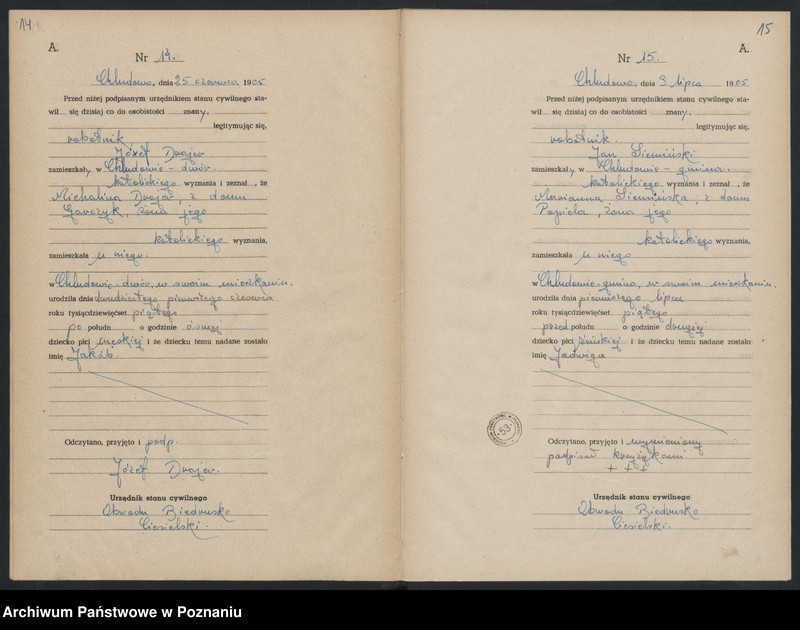 14
A.
Nr 14.
Chludowo, dnia 25 czerwca 1905
Przed niżej podpisanym urzędnikiem stanu cywilnego sta-
wił się dzisiaj co do osobistości znany,
legitymując się,
robotnik
Józef
zamieszkały w Chludowie - dwór.
katolickiego wyznania i zeznał, że
Michalina z domu
Gawczyk, żona jego
katolickiego wyznania,
zamieszkała u niego.
w Chludowie - dwór, w swoim mieszkaniu.
urodziła dnia dwudziestego pierwszego czerwca
roku tysiącdziewięćset piątego
po połudn o godzinie ósmej
dziecko płci męskiej i że dziecku temu nadane zostało
imię Jakób.
Odczytano, przyjęto i podp.
Józef
Urzędnik stanu cywilnego
Obwodu Biedrusko
Ciesielski.
15
A.
Nr 15.
Chludowo, dnia 3 lipca 1905
Przed niżej podpisanym urzędnikiem stanu cywilnego sta-
wił się dzisiaj co do osobistości znany,
legitymując się,
robotnik.
Jan Siemiński
zamieszkały w Chludowie - gmina.
katolickiego wyznania i zeznał, że
Marianna Siemińska, z domu
Papiela, żona jego
katolickiego wyznania,
zamieszkała u niego
w Chludowie - gmina, w swoim mieszkaniu.
urodziła dnia pierwszego lipca
roku tysiącdziewięćset piątego
przed połudn o godzinie drugiej
dziecko płci żeńskiej i że dziecku temu nadane zostało
imię Jadwiga
Odczytano, przyjęto i wymieniony
podpisał krzyżykami
+ + +
Urzędnik stanu cywilnego
Obwodu Biedrusko
Ciesielski.
53
Archiwum Państwowe w Poznaniu